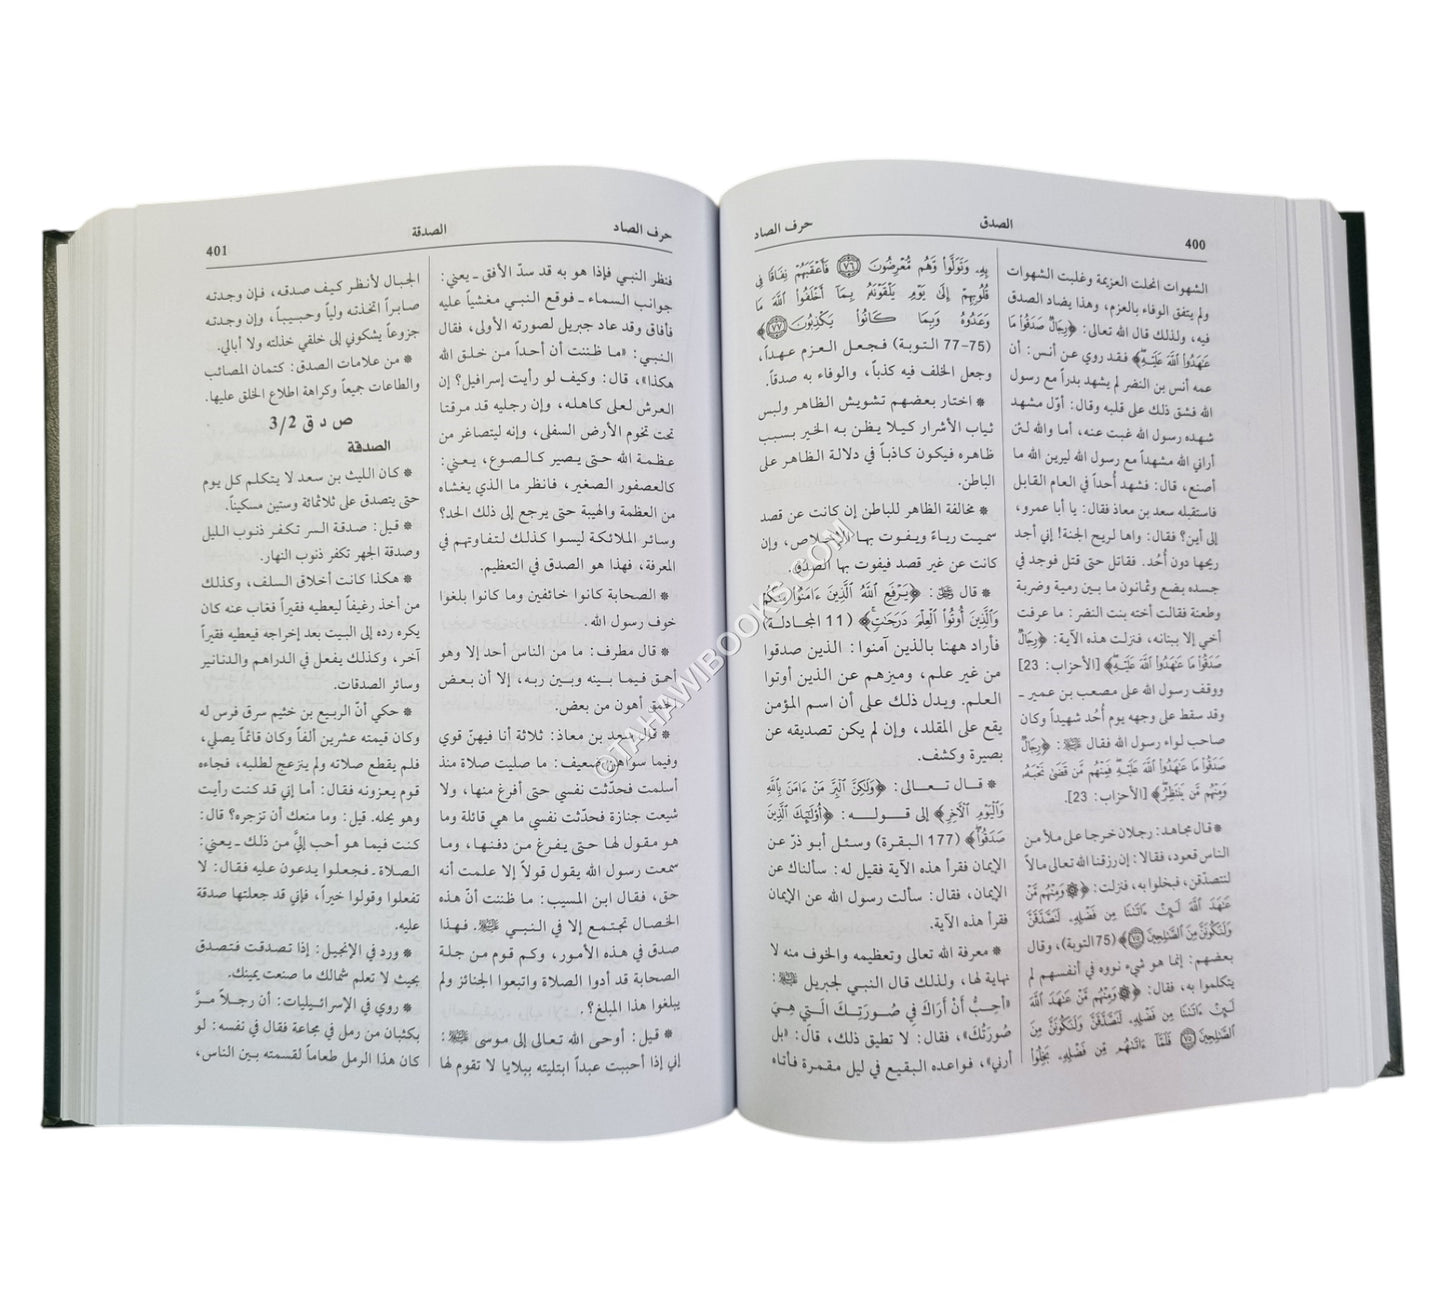 400
الصدق
حرف الصاد
الشهوات انحلت العزيمة وغلبت الشهوات
ولم يتفق الوفاء بالعزم، وهذا يضاد الصدق
فيه، ولذلك قال الله تعالى: ﴿رِجَالٌ صَدَقُوا۟ مَا
عَـٰهَدُوا۟ ٱللَّهَ عَلَيْهِ﴾ فقد روي عن أنس: أن
عمه أنس بن النضر لم يشهد بدراً مع رسول
الله فشق ذلك على قلبه وقال: أوّل مشهد
شهده رسول الله غبت عنه، أما والله لئن
أراني الله مشهداً مع رسول الله ليرين الله ما
أصنع، قال: فشهد أُحداً في العام القابل
فاستقبله سعد بن معاذ فقال: يا أبا عمرو،
إلى أين؟ فقال: واها لريح الجنة! إني أجد
ريحها دون أُحُد. فقاتل حتى قتل فوجد في
جسده بضع وثمانون ما بين رمية وضربة
وطعنة فقالت أخته بنت النضر: ما عرفت
أخي إلا ببنانه، فنزلت هذه الآية: ﴿رِجَالٌ
صَدَقُوا۟ مَا عَـٰهَدُوا۟ ٱللَّهَ عَلَيْهِ﴾ [الأحزاب: 23]
ووقف رسول الله على مصعب بن عمير ـ
وقد سقط على وجهه يوم أُحُد شهيداً وكان
صاحب لواء رسول الله فقال ﷺ: ﴿رِجَالٌ
صَدَقُوا۟ مَا عَـٰهَدُوا۟ ٱللَّهَ عَلَيْهِ فَمِنْهُم مَّن قَضَىٰ نَحْبَهُۥ
وَمِنْهُم مَّن يَنتَظِرُ﴾ [الأحزاب: 23].
* قال مجاهد: رجلان خرجا على ملأ من
الناس قعود، فقالا: إن رزقنا الله تعالى مالاً
لنتصدّقن، فبخلوا به، فنزلت: ﴿۞ وَمِنْهُم مَّنْ
عَـٰهَدَ ٱللَّهَ لَئِنْ ءَاتَىٰنَا مِن فَضْلِهِۦ لَنَصَّدَّقَنَّ
وَلَنَكُونَنَّ مِنَ ٱلصَّـٰلِحِينَ ٧٥﴾ (75 التوبة)، وقال
بعضهم: إنما هو شيء نووه في أنفسهم لم
يتكلموا به، فقال: ﴿۞ وَمِنْهُم مَّنْ عَـٰهَدَ ٱللَّهَ
لَئِنْ ءَاتَىٰنَا مِن فَضْلِهِۦ لَنَصَّدَّقَنَّ وَلَنَكُونَنَّ مِنَ
ٱلصَّـٰلِحِينَ ٧٥ فَلَمَّآ ءَاتَىٰهُم مِّن فَضْلِهِۦ بَخِلُوا۟
بِهِۦ وَتَوَلَّوا۟ وَّهُم مُّعْرِضُونَ ٧٦ فَأَعْقَبَهُمْ نِفَاقًا فِى
قُلُوبِهِمْ إِلَىٰ يَوْمِ يَلْقَوْنَهُۥ بِمَآ أَخْلَفُوا۟ ٱللَّهَ مَا
وَعَدُوهُ وَبِمَا كَانُوا۟ يَكْذِبُونَ ٧٧﴾
(75-77 التوبة) فجعل العزم عهداً،
وجعل الخلف فيه كذباً، والوفاء به صدقاً.
* اختار بعضهم تشويش الظاهر ولبس
ثياب الأشرار كيلا يظن به الخير بسبب
ظاهره فيكون كاذباً في دلالة الظاهر على
الباطن.
* مخالفة الظاهر للباطن إن كانت عن قصد
سميت رياءً ويفوت بها الإخلاص، وإن
كانت عن غير قصد فيفوت بها الصدق.
* قال ﷺ: ﴿يَرْفَعِ ٱللَّهُ ٱلَّذِينَ ءَامَنُوا۟ مِنكُمْ
وَٱلَّذِينَ أُوتُوا۟ ٱلْعِلْمَ دَرَجَـٰتٍ﴾ (11 المجادلة)
فأراد ههنا بالذين آمنوا: الذين صدقوا
من غير علم، وميزهم عن الذين أوتوا
العلم. ويدل ذلك على أن اسم المؤمن
يقع على المقلد، وإن لم يكن تصديقه عن
بصيرة وكشف.
* قال تعالى: ﴿وَلَـٰكِنَّ ٱلْبِرَّ مَنْ ءَامَنَ بِٱللَّهِ
وَٱلْيَوْمِ ٱلْـَٔاخِرِ﴾ إلى قوله: ﴿أُو۟لَـٰٓئِكَ ٱلَّذِينَ
صَدَقُوا۟﴾ (177 البقرة) وسئل أبو ذرّ عن
الإيمان فقرأ هذه الآية فقيل له: سألناك عن
الإيمان، فقال: سألت رسول الله عن الإيمان
فقرأ هذه الآية.
* معرفة الله تعالى وتعظيمه والخوف منه لا
نهاية لها، ولذلك قال النبي لجبريل ﷺ:
«أُحِبُّ أَنْ أَرَاكَ فِي صُورَتِكَ الَتي هِيَ
صُورَتُكَ»، فقال: لا تطيق ذلك، قال: «بل
أرني»، فواعده البقيع في ليل مقمرة فأتاه
حرف الصاد
الصدقة
401
فنظر النبي فإذا هو به قد سدّ الأفق ـ يعني:
جوانب السماء ـ فوقع النبي مغشياً عليه
فأفاق وقد عاد جبريل لصورته الأولى، فقال
النبي: «ما ظننت أن أحداً من خلق الله
هكذا»، قال: وكيف لو رأيت إسرافيل؟ إن
العرش لعلى كاهله، وإن رجليه قد مرقتا
تحت تخوم الأرض السفلى، وإنه ليتصاغر من
عظمة الله حتى يصير كالصوع، يعني:
كالعصفور الصغير، فانظر ما الذي يغشاه
من العظمة والهيبة حتى يرجع إلى ذلك الحد؟
وسائر الملائكة ليسوا كذلك لتفاوتهم في
المعرفة، فهذا هو الصدق في التعظيم.
* الصحابة كانوا خائفين وما كانوا بلغوا
خوف رسول الله.
* قال مطرف: ما من الناس أحد إلا وهو
أحمق فيما بينه وبين ربه، إلا أن بعض
الحمق أهون من بعض.
* قال سعد بن معاذ: ثلاثة أنا فيهنّ قوي
وفيما سواهنّ ضعيف: ما صليت صلاة منذ
أسلمت فحدّثت نفسي حتى أفرغ منها، ولا
شيعت جنازة فحدّثت نفسي ما هي قائلة وما
هو مقول لها حتى يفرغ من دفنها، وما
سمعت رسول الله يقول قولاً إلا علمت أنه
حق، فقال ابن المسيب: ما ظننت أنّ هذه
الخصال تجتمع إلا في النبي ﷺ. فهذا
صدق في هذه الأمور، وكم قوم من جلة
الصحابة قد أدوا الصلاة واتبعوا الجنائز ولم
يبلغوا هذا المبلغ؟.
* قيل: أوحى الله تعالى إلى موسى ﷺ:
إني إذا أحببت عبداً ابتليته ببلايا لا تقوم لها
الجبال لأنظر كيف صدقه، فإن وجدته
صابراً اتخذته ولياً وحبيباً، وإن وجدته
جزوعاً يشكوني إلى خلقي خذلته ولا أبالي.
* من علامات الصدق: كتمان المصائب
والطاعات جميعاً وكراهة اطلاع الخلق عليها.
ص د ق 3/2
الصدقة
* كان الليث بن سعد لا يتكلم كل يوم
حتى يتصدق على ثلاثمائة وستين مسكيناً.
* قيل: صدقة السر تكفر ذنوب الليل
وصدقة الجهر تكفر ذنوب النهار.
* هكذا كانت أخلاق السلف، وكذلك
من أخذ رغيفاً ليعطيه فقيراً فغاب عنه كان
يكره رده إلى البيت بعد إخراجه فيعطيه فقيراً
آخر، وكذلك يفعل في الدراهم والدنانير
وسائر الصدقات.
* حكي أنّ الربيع بن خثيم سرق فرس له
وكان قيمته عشرين ألفاً وكان قائماً يصلي،
فلم يقطع صلاته ولم ينزعج لطلبه، فجاءه
قوم يعزونه فقال: أما إني قد كنت رأيت
وهو يحله. قيل: وما منعك أن تزجره؟ قال:
كنت فيما هو أحب إليَّ من ذلك ـ يعني:
الصلاة ـ فجعلوا يدعون عليه فقال: لا
تفعلوا وقولوا خيراً، فإني قد جعلتها صدقة
عليه.
* ورد في الإنجيل: إذا تصدقت فتصدق
بحيث لا تعلم شمالك ما صنعت يمينك.
* روي في الإسرائيليات: أن رجلاً مرَّ
بكثبان من رمل في مجاعة فقال في نفسه: لو
كان هذا الرمل طعاماً لقسمته بين الناس،
©TAHAWIBOOKS.COM